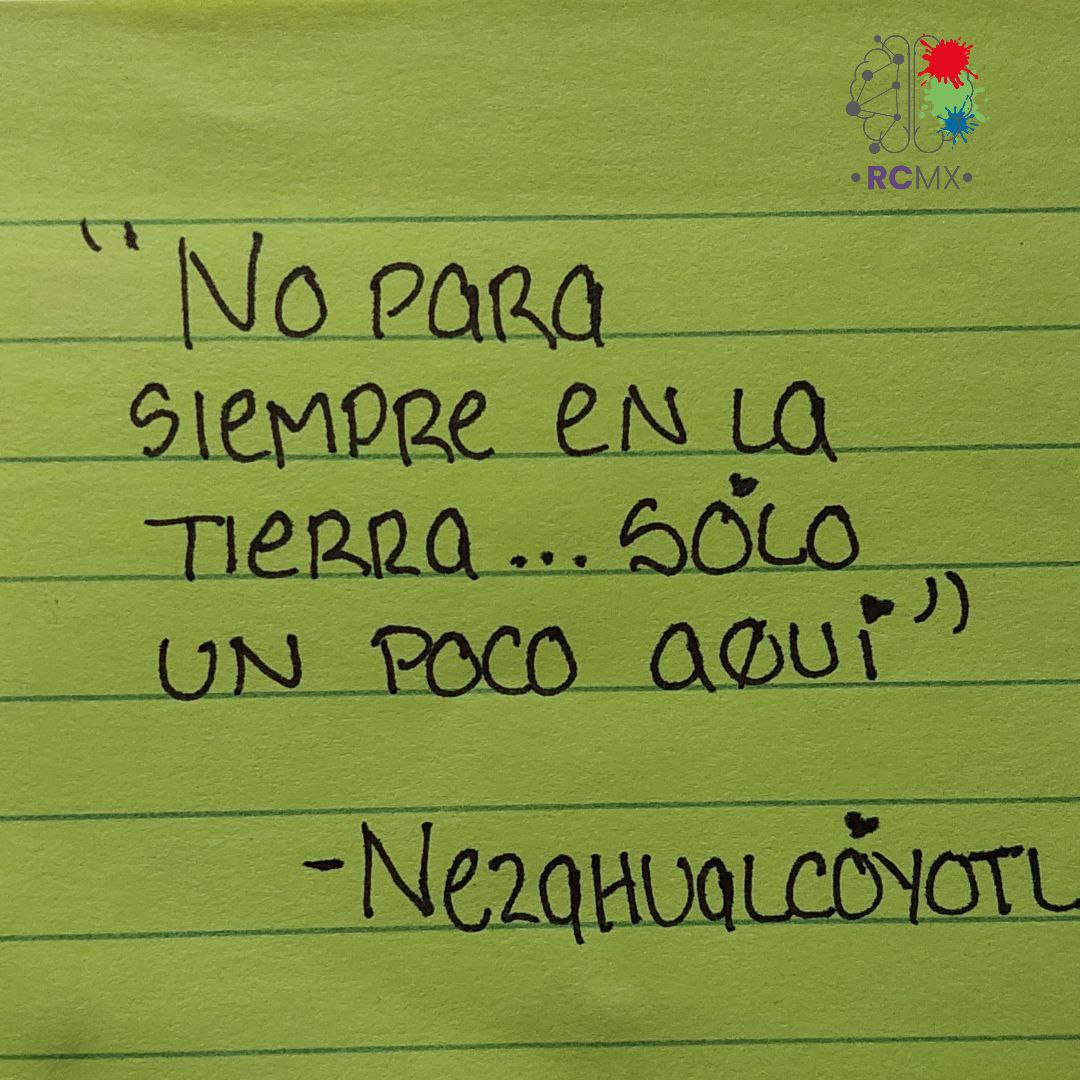 •RCMX•
"No para
siempre en la
tierra... sólo
un poco aquí"
-Nezahualcóyotl